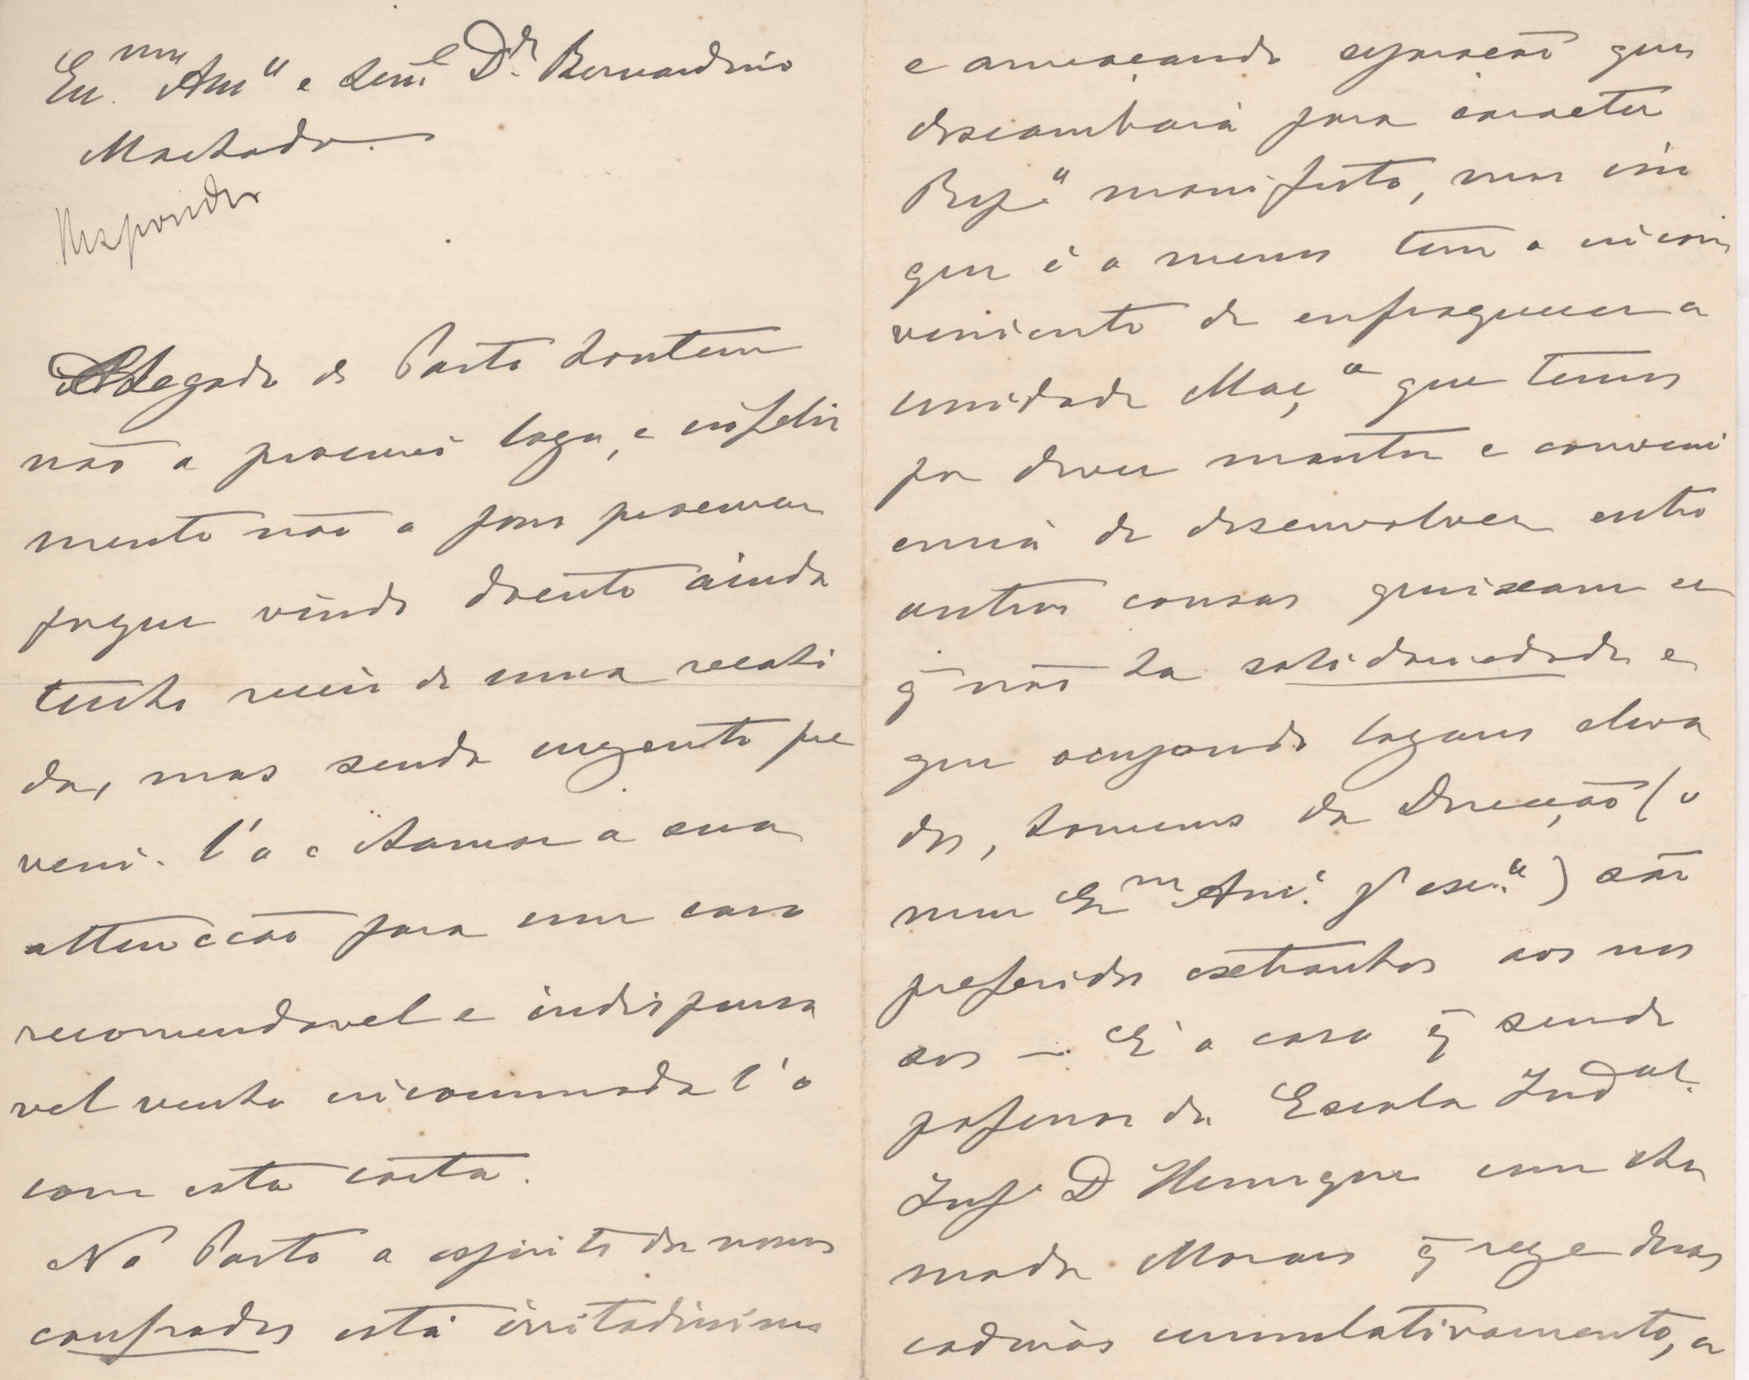 Ex.mo Am.o e Sem.e D.or Bernardino
Machado.
Responder
Chegado do Porto hontem
não o procurei logo, e infeliz
mente não o posso procurar
porque vindo doente ainda
tenho receio de uma recahi
da, mas sendo urgente pre
veni-l'o e chamar a sua
attencção para um caso
recomendavel e indispensa
vel venho incommodal'o
com esta carta.
No Porto o espirito dos nossos
confrades está irritadissimo
e ameaçando separação que
descambará para caracter
Rep.o manifesto, mas isso
que é o menos tem o incon
veniente de enfraquecer a
unidade Maç.a que temos
por dever manter e conveni
encia de desenvolver entre
outras cousas queixam-se
q̃ não ha solidariedade e
que ocupando logares eleva
dos, homens da Direcção (o
meu Ex.mo Am.o p.r ex.o) são
preferidos extranhos aos nos
sos — É o caso q̃ sendo
professor da Escola Ind.al
Inf. D. Henrique um cha
mado Moraes q̃ rege duas
cadeiras cumulativamente, a